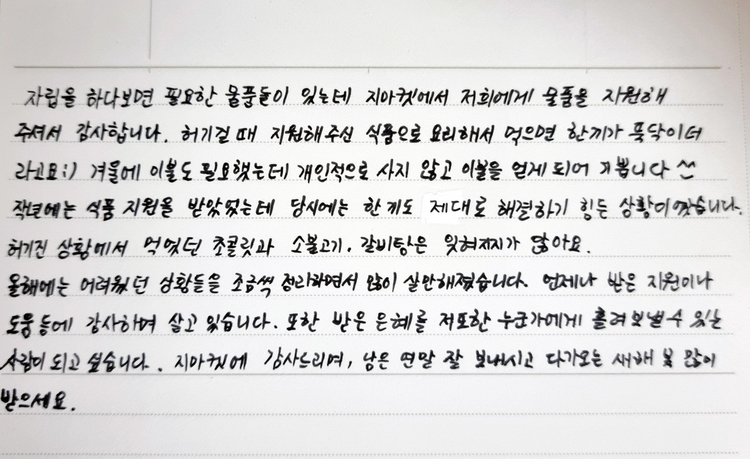 자립을 하다보면 필요한 물품들이 있는데 지마켓에서 저희에게 물품을 지원해
주셔서 감사합니다. 허기질 때 지원해주신 식품으로 요리해서 먹으면 한끼가 뚝딱이더
라고요:) 겨울에 이불도 필요했는데 개인적으로 사지 않고 이불을 얻게 되어 기쁩니다 ^^
작년에는 식품 지원을 받았었는데 당시에는 한끼도 제대로 해결하기 힘든 상황이었습니다.
허기진 상황에서 먹었던 초콜릿과 소불고기, 갈비탕은 잊혀지지가 않아요.
올해에는 어려웠던 상황들을 조금씩 정리하면서 많이 살만해졌습니다. 언제나 받은 지원이나
도움들에 감사하며 살고 있습니다. 또한 받은 은혜를 저또한 누군가에게 흘려보낼 수 있는
사람이 되고 싶습니다. 지마켓에 감사드리며, 남은 연말 잘 보내시고 다가오는 새해 복 많이
받으세요.